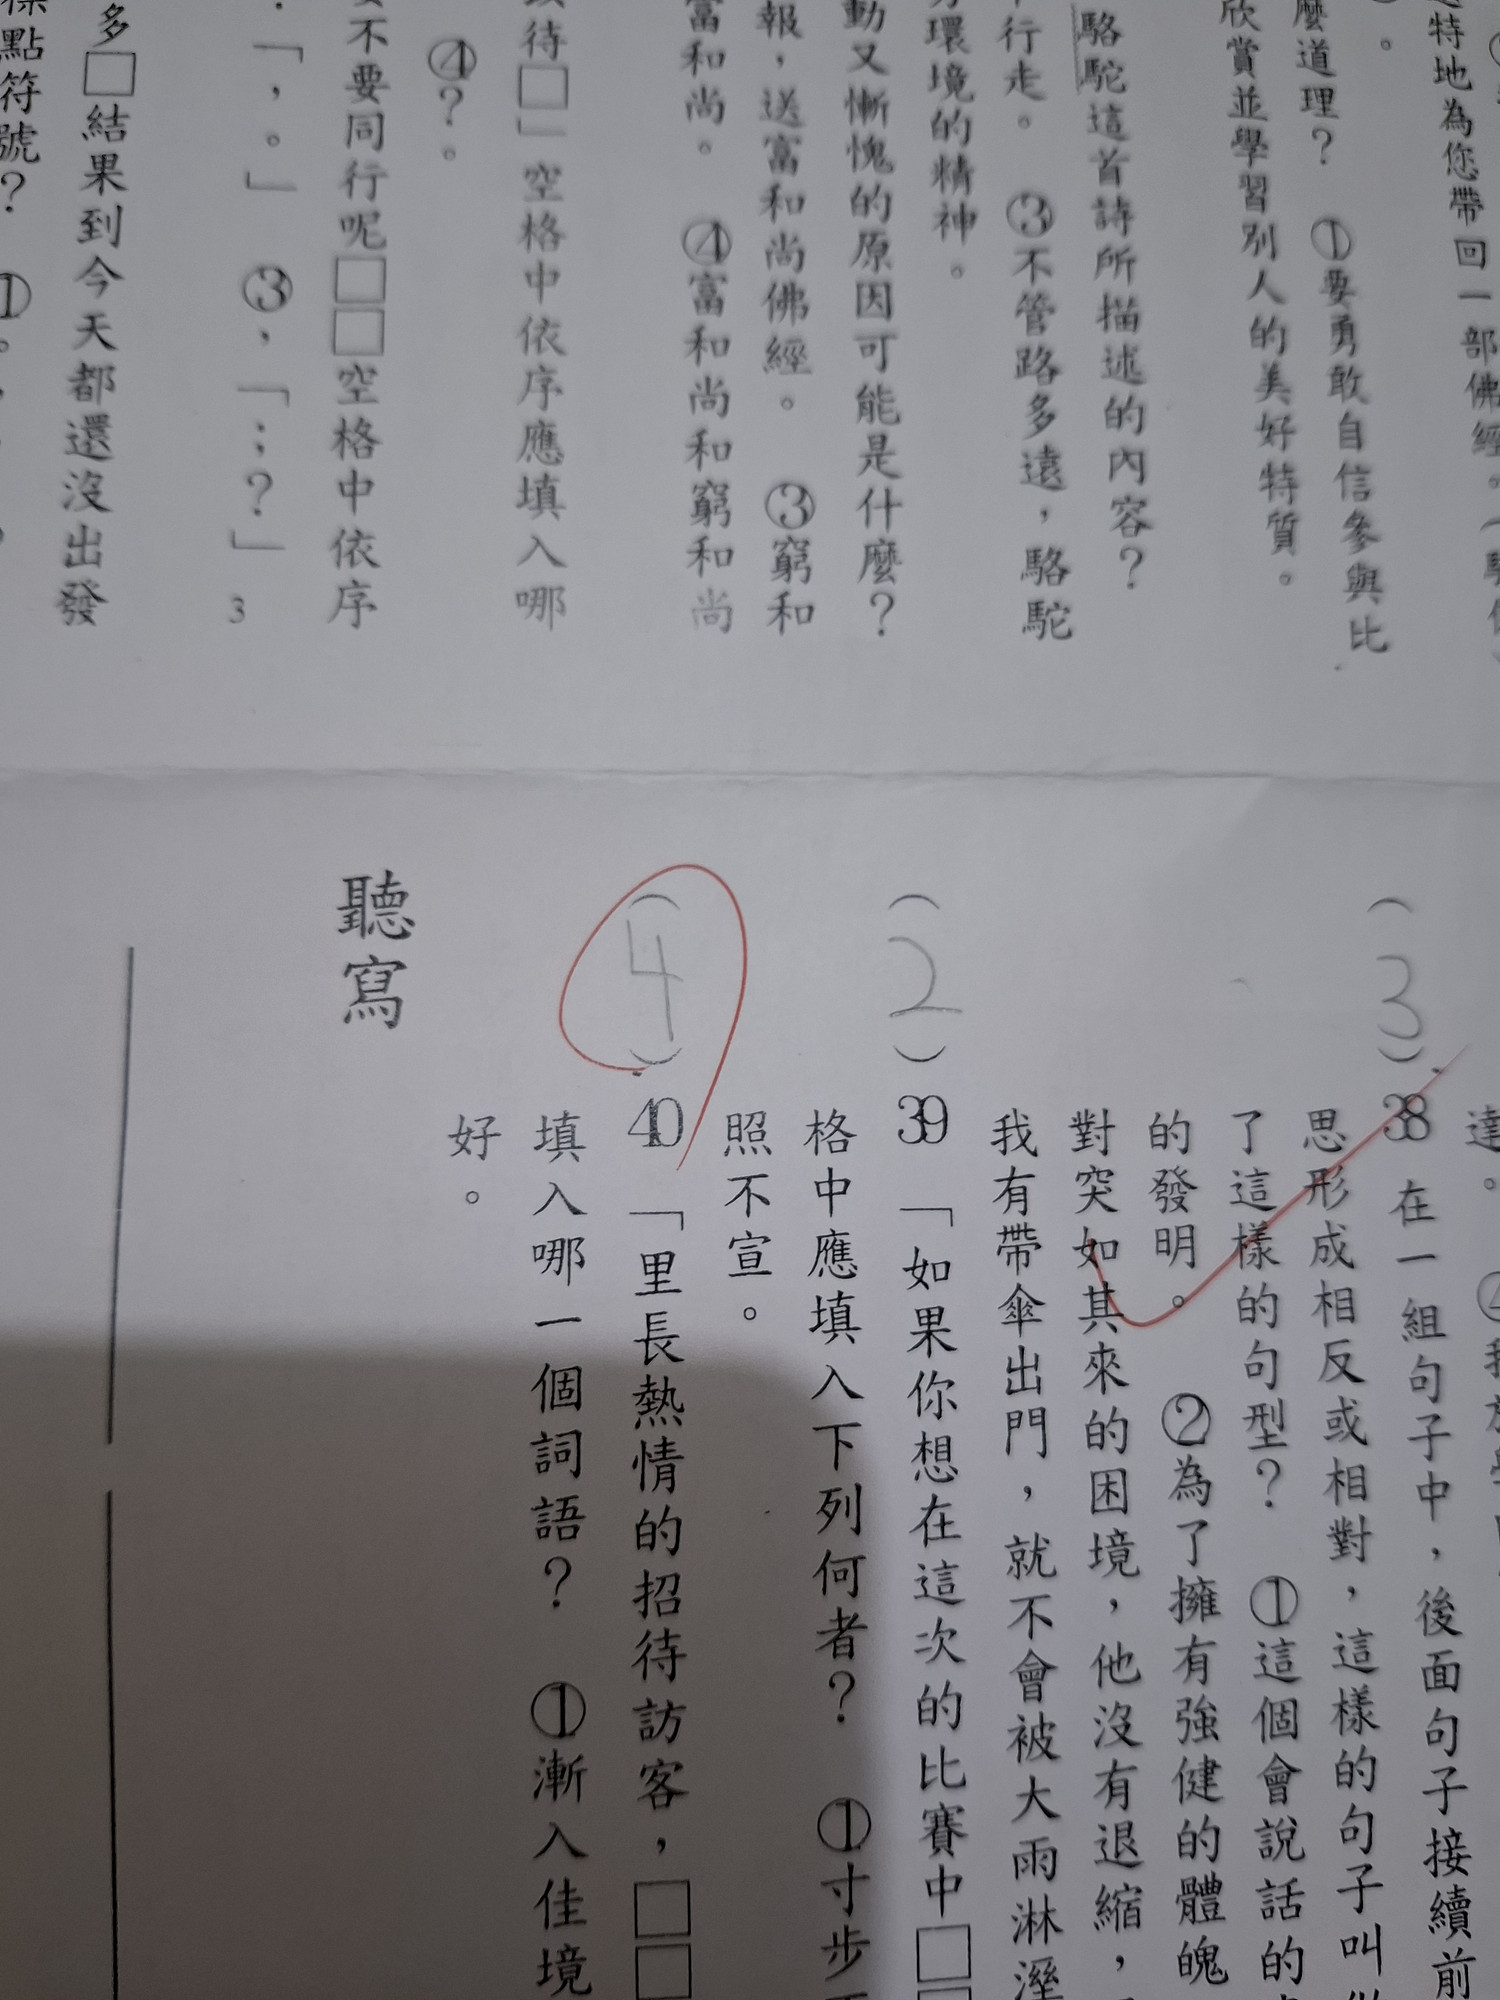 特地為您帶回一部佛經。
麼道理？ ①要勇敢自信參與比
欣賞並學習別人的美好特質。
駱駝這首詩所描述的內容？
行走。 ③不管路多遠，駱駝
環境的精神。
動又慚愧的原因可能是什麼？
報，送富和尚佛經。 ③窮和
富和尚。 ④富和尚和窮和尚
待□」空格中依序應填入哪
④？。
不要同行呢□□空格中依序
「，。」 ③，「；？」
3
多□結果到今天都還沒出發
標點符號？ ①。，
達。
(3)38 在一組句子中，後面句子接續前
思形成相反或相對，這樣的句子叫
了這樣的句型？ ①這個會說話的
的發明。 ②為了擁有強健的體魄
對突如其來的困境，他沒有退縮，
我有帶傘出門，就不會被大雨淋溼
(2)39 「如果你想在這次的比賽中□
格中應填入下列何者？ ①寸步
照不宣。
(4)40 「里長熱情的招待訪客，□□
填入哪一個詞語？ ①漸入佳境
好。
聽寫